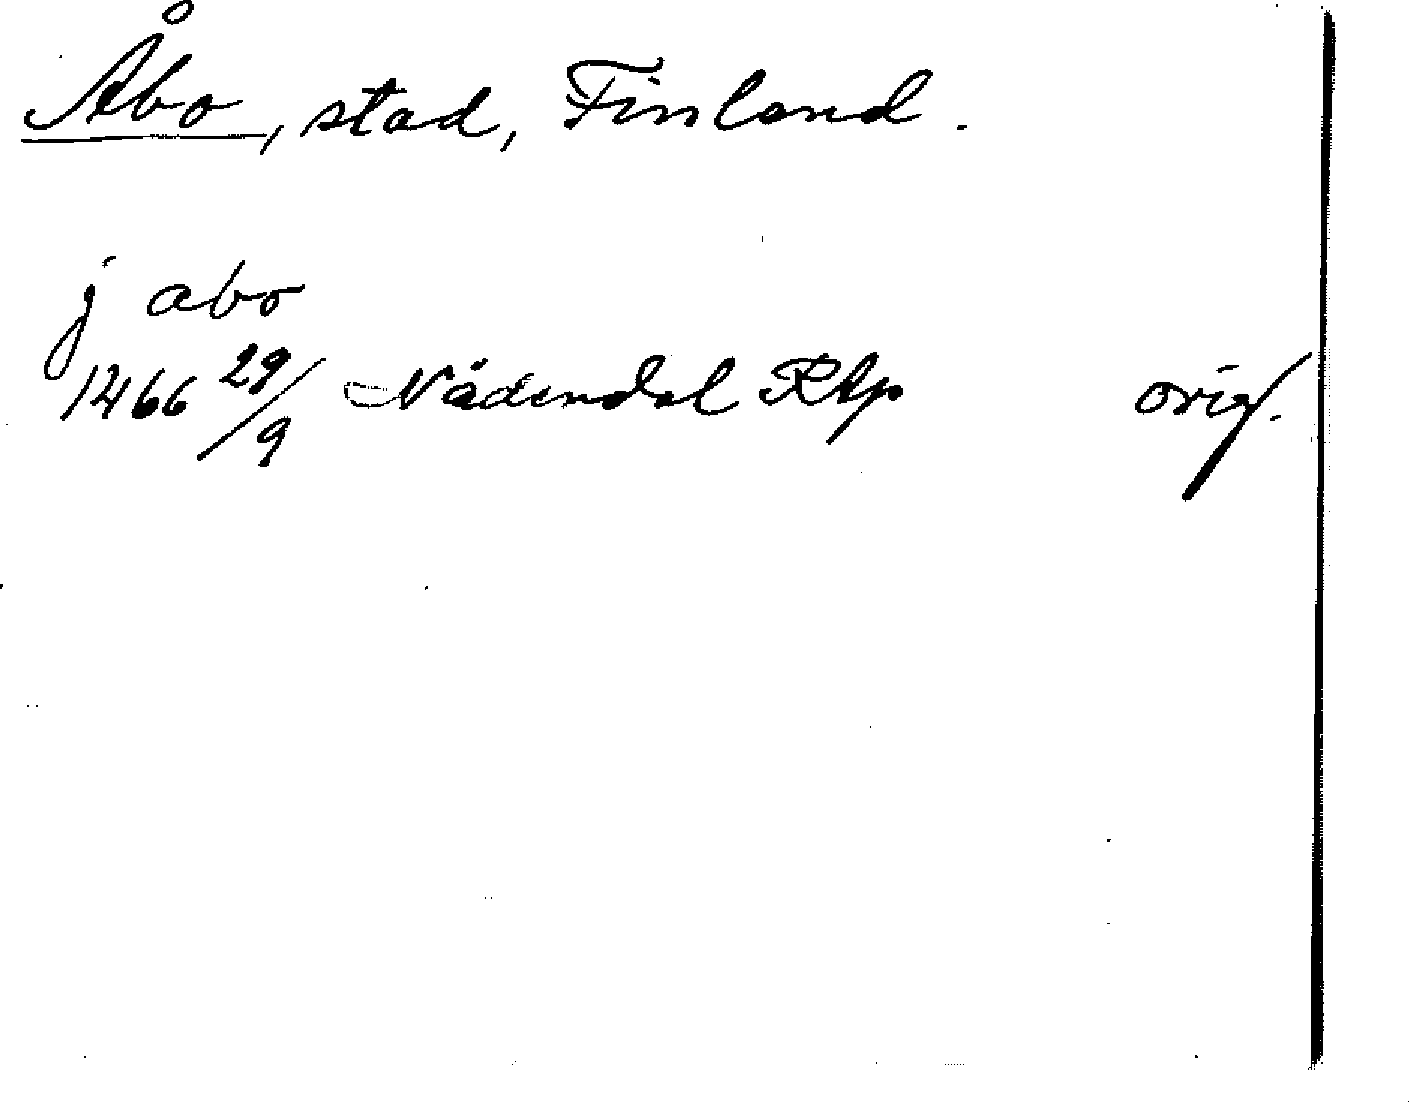 Åbo, stad, Finland.
j abo
1466 29/9 Nådendal RAp orig.